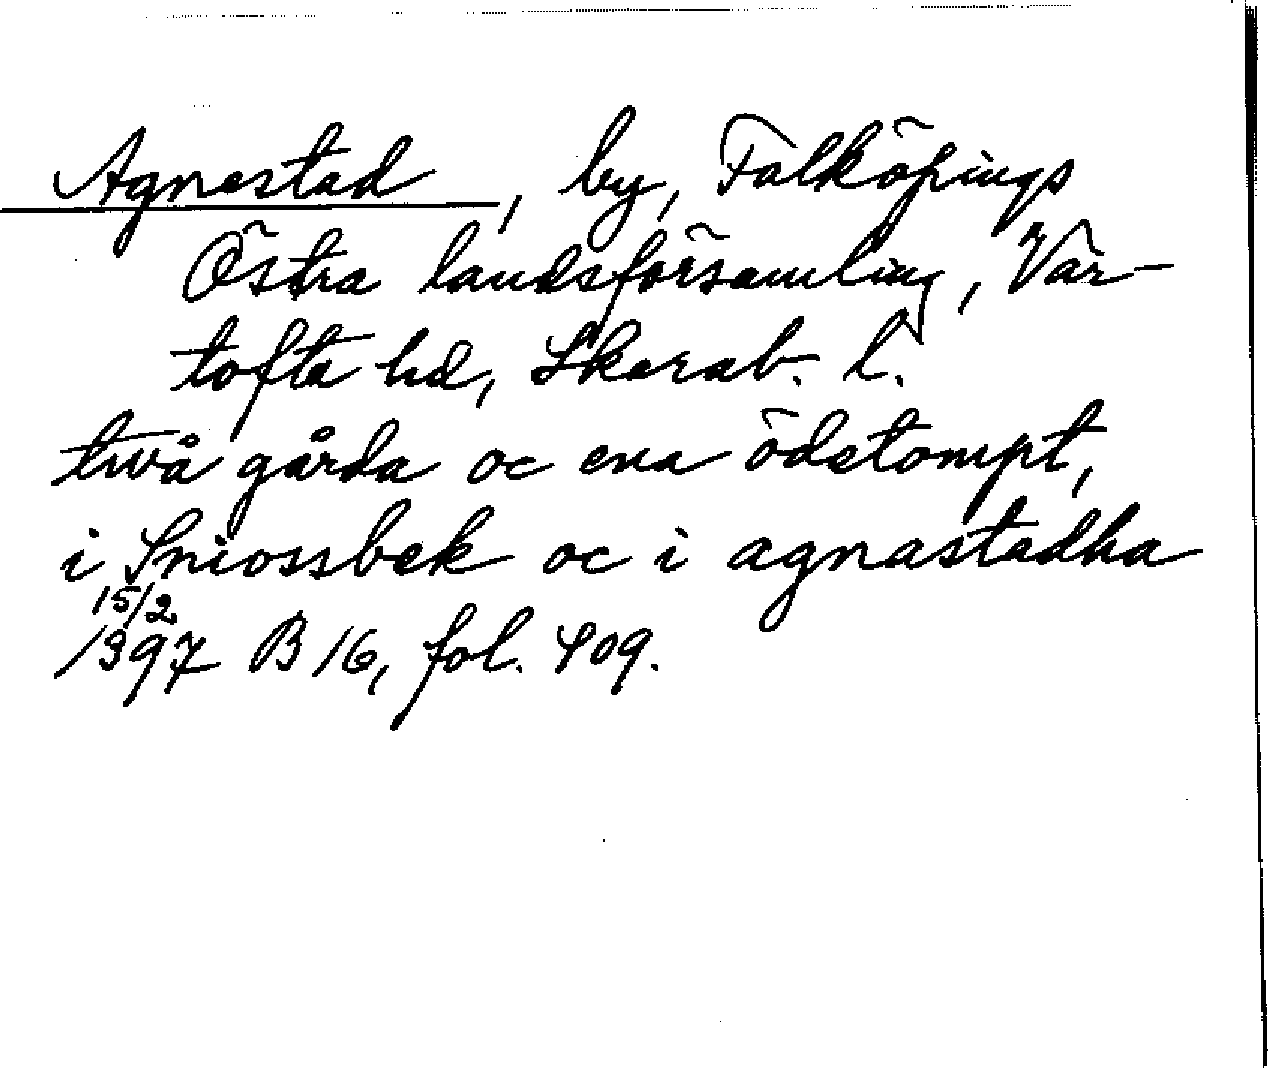 Agnestad, by, Falköpings
Östra landsförsamling, Vår-
tofta hd, Skarab. l.
twå gårda oc ena ödetompt,
i Sniossbek oc i agnastadha
15/2
1397 B 16, fol. 409.